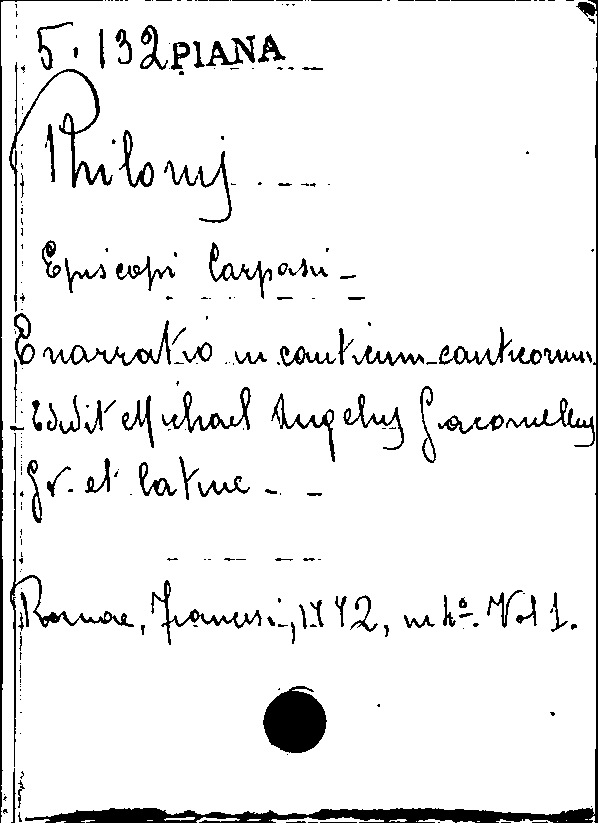 5. 132 PIANA
Philonis
Episcopi Carpasii -
Enarratio in canticum canticorum.
Edidit Michael Angelus Giacomellus
Gr. et latine - -
Romae, Francesi, 1772, in 4º. Vol 1.